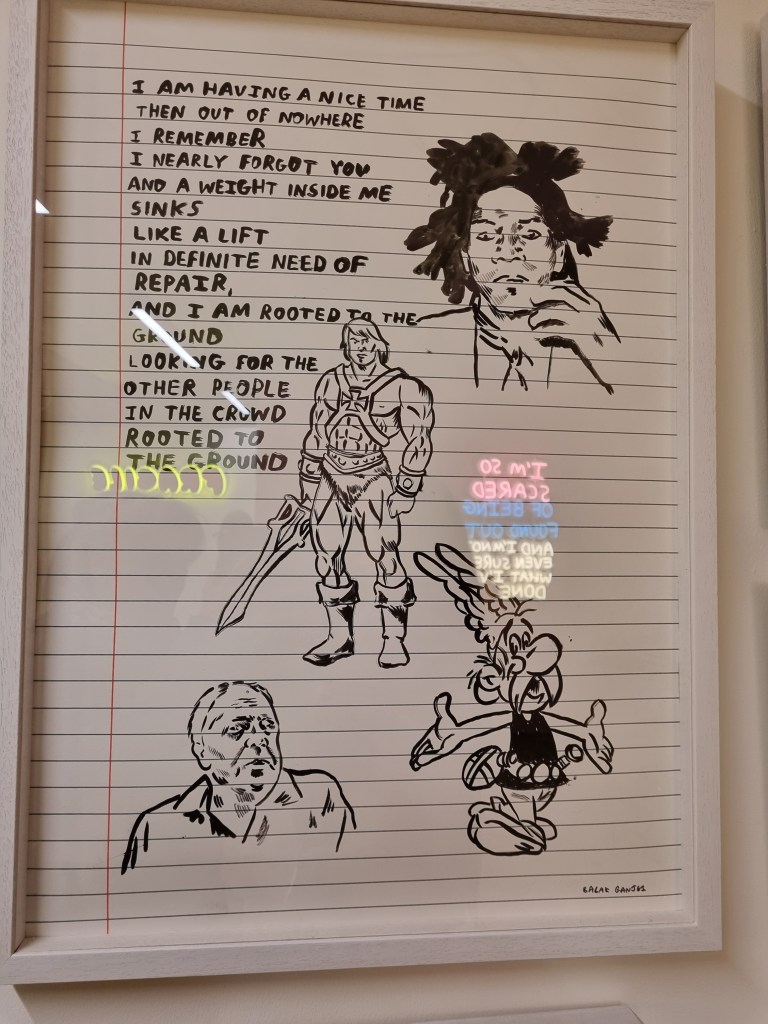 I AM HAVING A NICE TIME
THEN OUT OF NOWHERE
I REMEMBER
I NEARLY FORGOT YOU
AND A WEIGHT INSIDE ME
SINKS
LIKE A LIFT
IN DEFINITE NEED OF
REPAIR,
AND I AM ROOTED TO THE
GROUND
LOOKING FOR THE
OTHER PEOPLE
IN THE CROWD
ROOTED TO
THE GROUND
I'M SO
SCARED
OF BEING
FOUND OUT
AND I'M NO
EVEN SURE
WHAT I'V
DONE